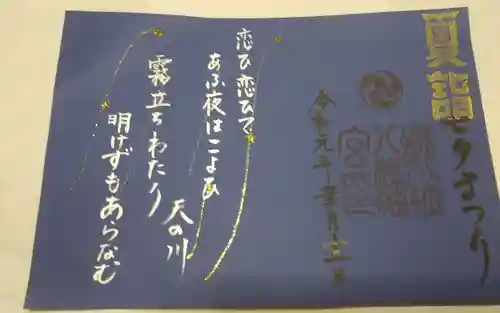 夏詣
七夕まつり
令和元年
恋ひ恋ひて
あふ夜はこよひ
天の川
霧立ちわたり
明けずもあらなむ